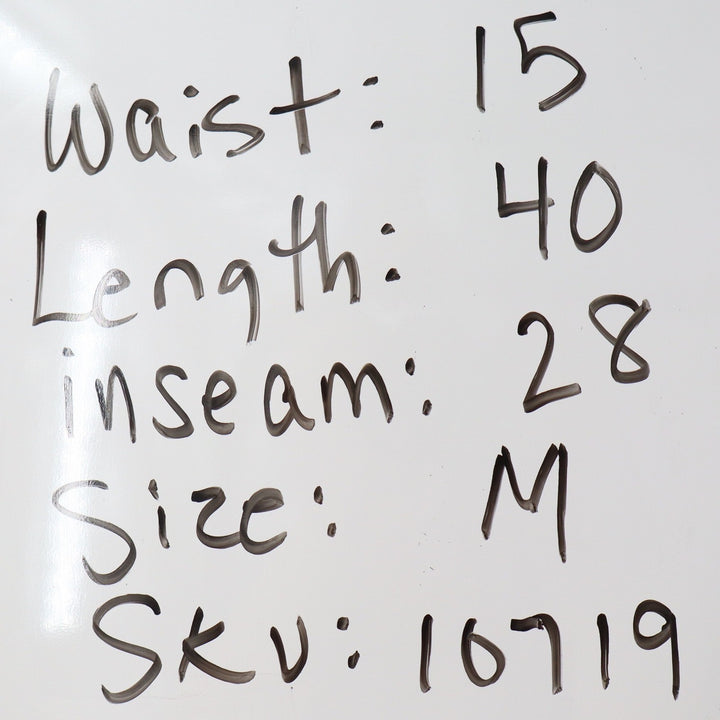 Waist: 15
Length: 40
inseam: 28
Size: M
SKU: 10719